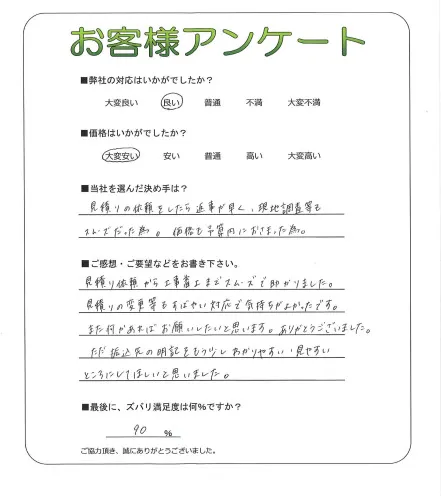 お客様アンケート
■弊社の対応はいかがでしたか？
大変良い 良い 普通 不満 大変不満
■価格はいかがでしたか？
大変安い 安い 普通 高い 大変高い
■当社を選んだ決め手は？
見積りの依頼をしたら返事が早く、現地調査等も
スムーズだった為。価格も予算内におさまった為。
■ご感想・ご要望などをお書き下さい。
見積り依頼から工事着工までスムーズで助かりました。
見積りの変更等もすばやい対応で気持ちがよかったです。
また何かあればお願いしたいと思います。ありがとうございました。
ただ振込先の明記をもう少しわかりやすい・見やすい
ところにしてほしいと思いました。
■最後に、ズバリ満足度は何%ですか？
90 %
ご協力頂き、誠にありがとうございました。